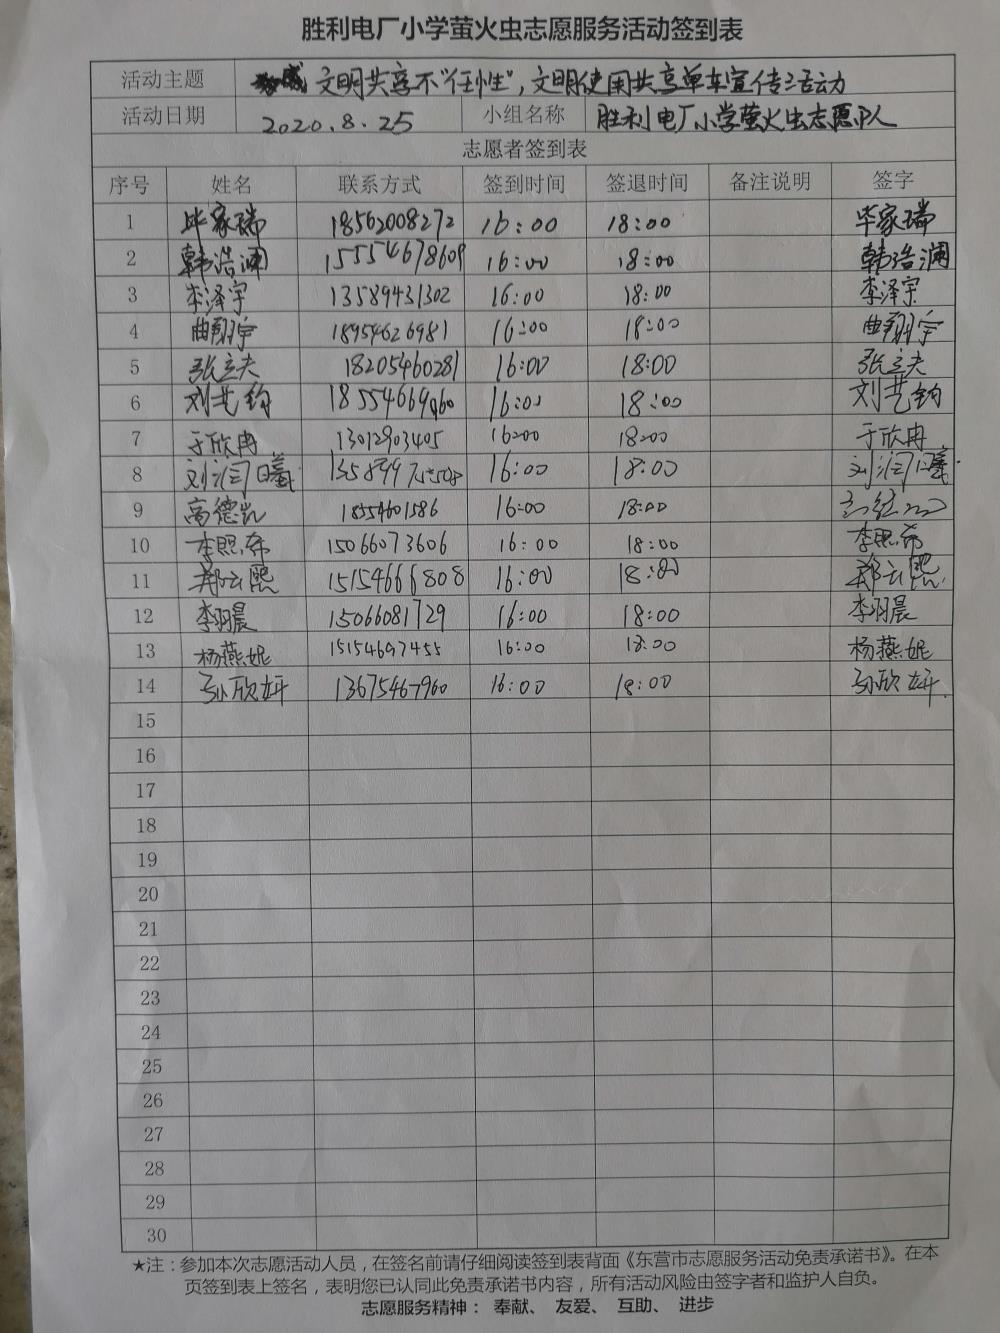 胜利电厂小学萤火虫志愿服务活动签到表
活动主题 文明共享不"任性",文明使用共享单车宣传活动
活动日期 2020.8.25 小组名称 胜利电厂小学萤火虫志愿中队
志愿者签到表
序号 姓名 联系方式 签到时间 签退时间 备注说明 签字
1 毕家瑞 18562008272 16:00 18:00 毕家瑞
2 韩浩澜 15554678609 16:00 18:00 韩浩澜
3 李泽宇 13589431302 16:00 18:00 李泽宇
4 曲翔宇 18954626981 16:00 18:00 曲翔宇
5 张立夫 18205460281 16:00 18:00 张立夫
6 刘艺钧 18554669960 16:00 18:00 刘艺钧
7 于欣冉 13012903405 16:00 18:00 于欣冉
8 刘润曦 16:00 18:00 刘润曦
9 高德凯 18554601586 16:00 18:00
10 李熙希 15066073606 16:00 18:00 李熙希
11 郑云熙 15154666808 16:00 18:00 郑云熙
12 李羽晨 15066081729 16:00 18:00 李羽晨
13 杨燕妮 15154697455 16:00 18:00 杨燕妮
14 孙欣妍 13675467960 16:00 18:00 孙欣妍
15
16
17
18
19
20
21
22
23
24
25
26
27
28
29
30
★注:参加本次志愿活动人员,在签名前请仔细阅读签到表背面《东营市志愿服务活动免责承诺书》。在本
页签到表上签名,表明您已认同此免责承诺书内容,所有活动风险由签字者和监护人自负。
志愿服务精神: 奉献、 友爱、 互助、 进步